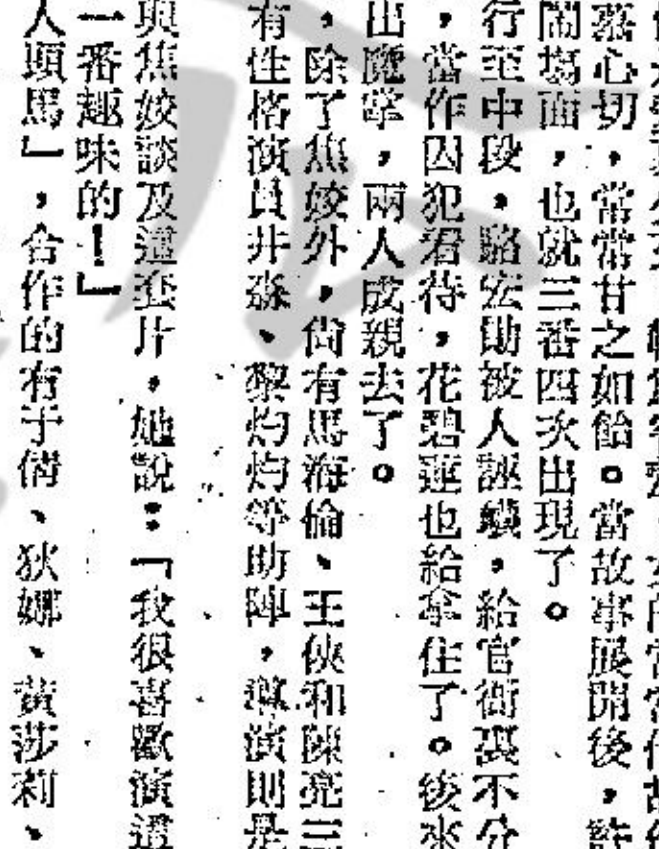 慕心切，常常甘之如飴。當故事展開後，許
鬧場面，也就三番四次出現了。
行至中段，駱宏勛被人誣衊，給官衙裏不分
，當作囚犯看待，花碧蓮也給拿住了。後來
出魔掌，兩人成親去了。
，除了焦姣外，尚有馬海倫、王俠和陳亮三
有性格演員井淼、黎灼灼等助陣，導演則是
與焦姣談及這套片，她說：「我很喜歡演這
一番趣味的！」
人頭馬」，合作的有于倩、狄娜、黃莎莉、